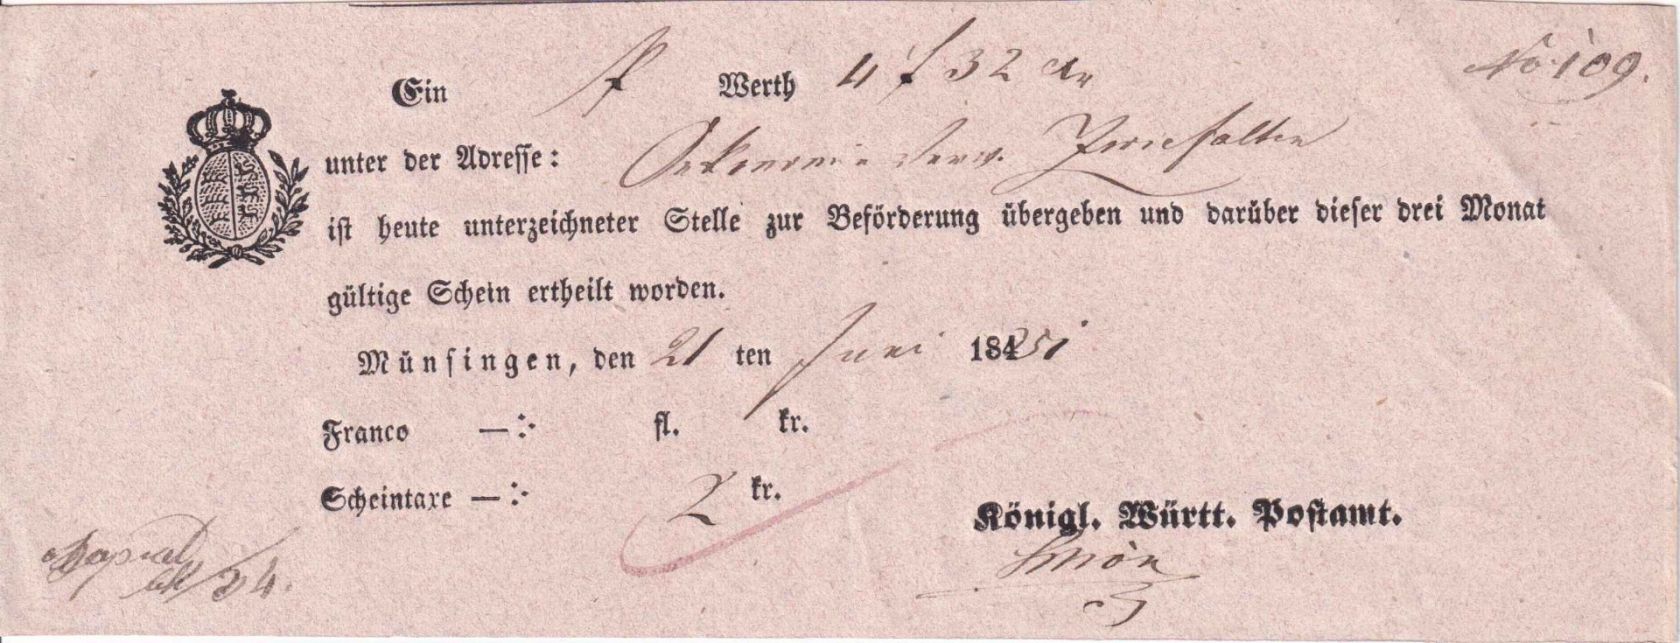 No 109.
Ein Werth 4 f 32 xr
unter der Adresse: Oekonomie Verw. Zwiefalten
ist heute unterzeichneter Stelle zur Beförderung übergeben und darüber dieser drei Monat
gültige Schein ertheilt worden.
Münsingen, den 21 ten Juni 1851
Franco —:· fl. kr.
Scheintaxe —:· 2 kr.
Königl. Württ. Postamt.